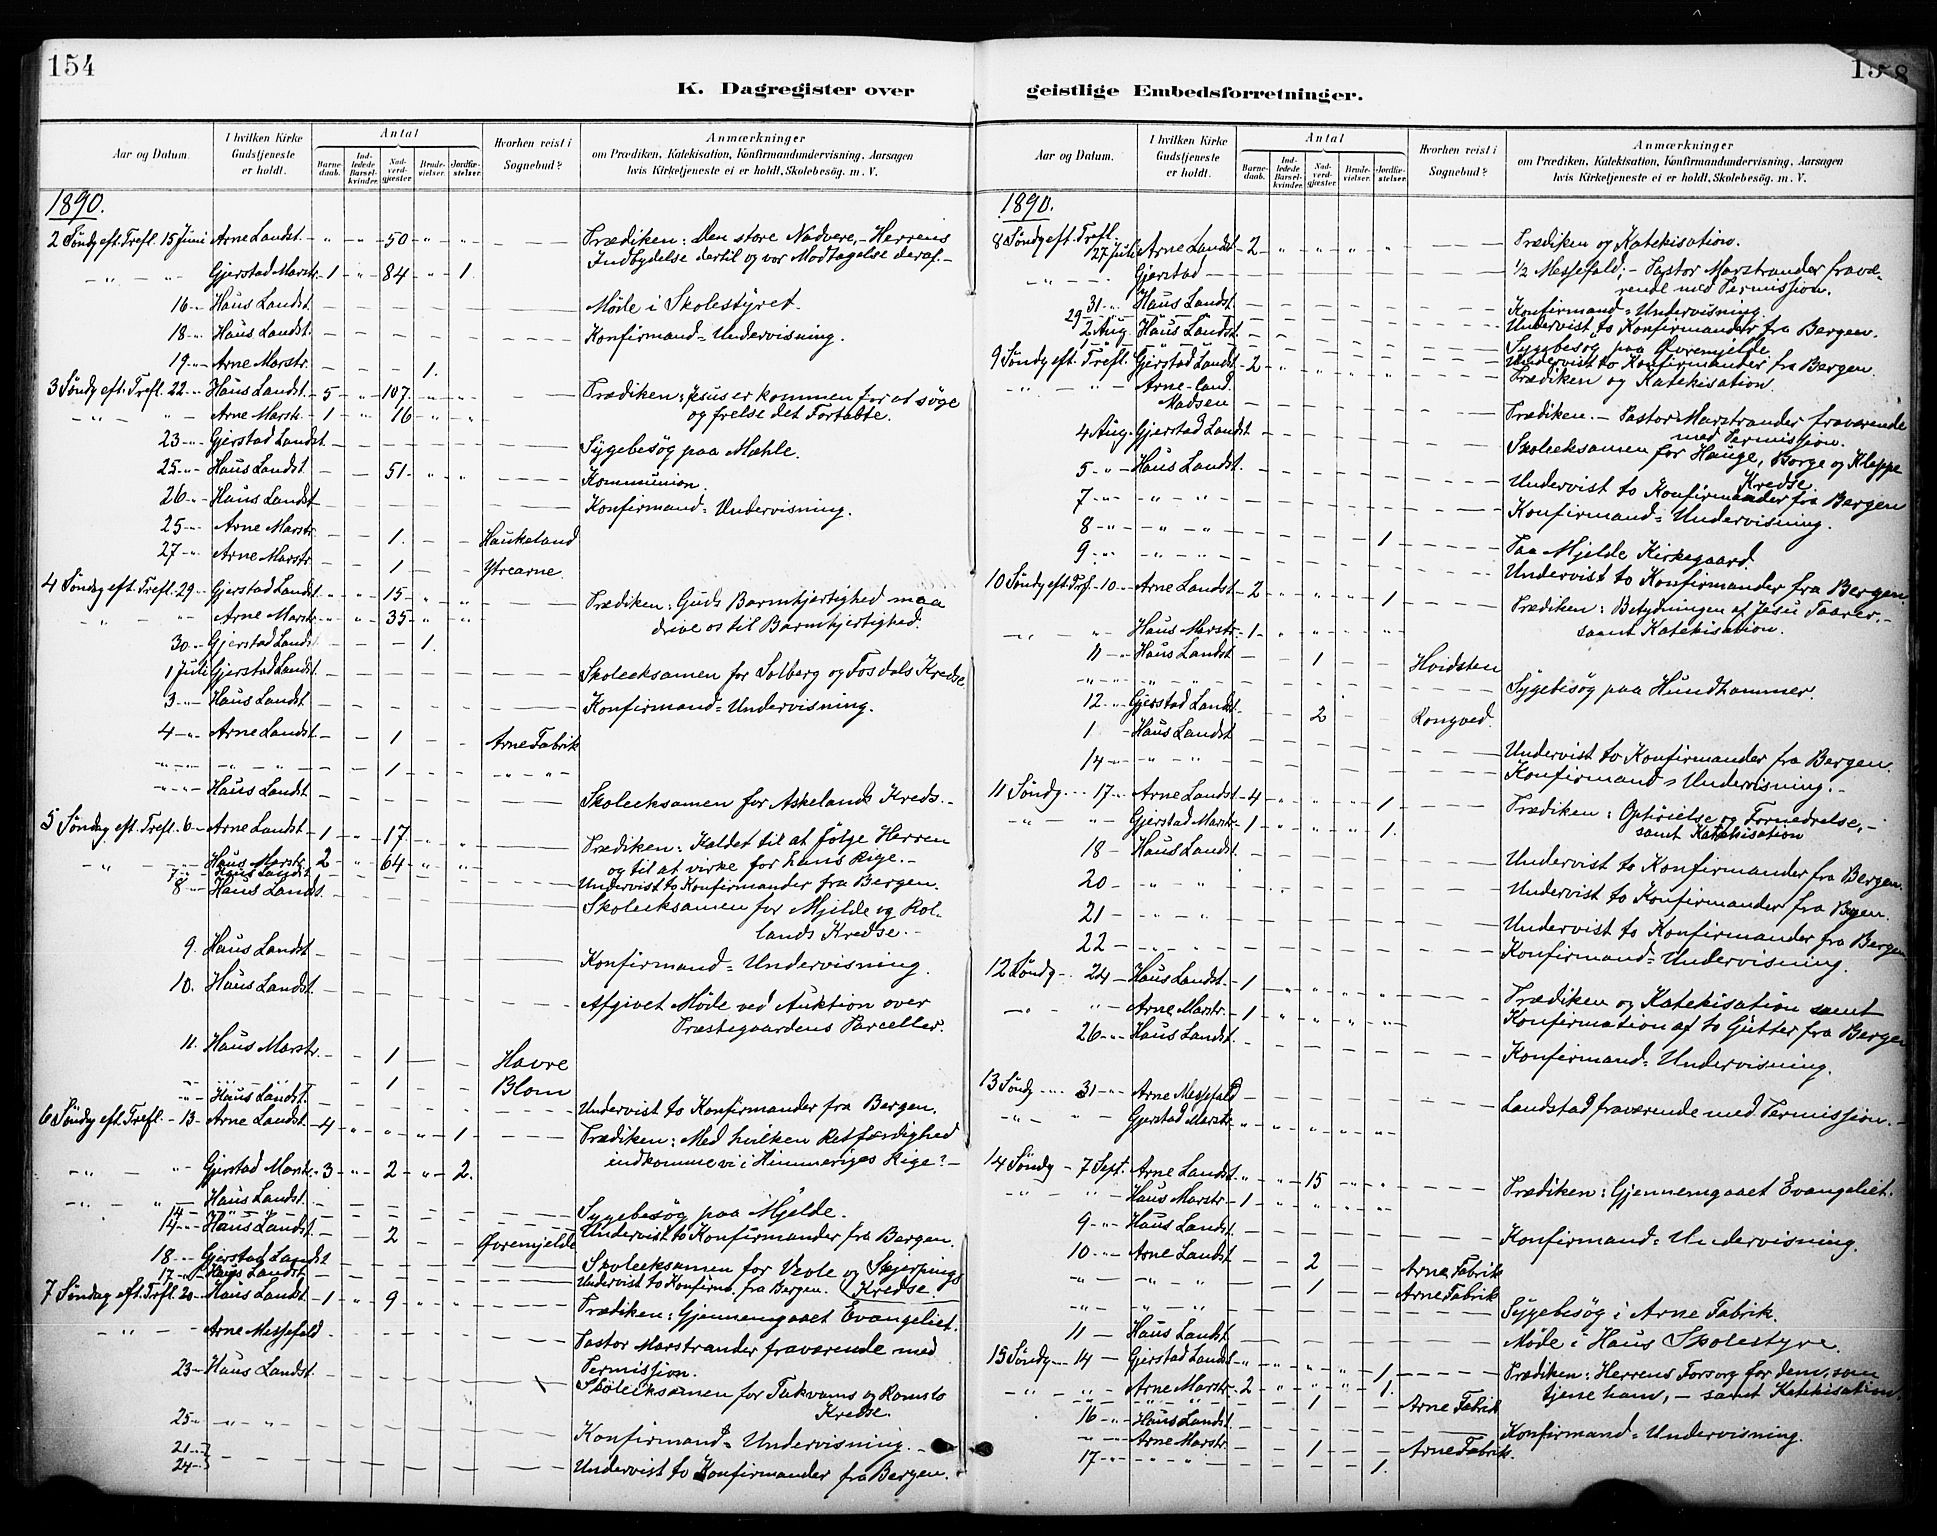 154
K. Dagregister over
Aar og Datum.
I hvilken Kirke Gudstjeneste er holdt.
Antal
Barnedaab.
Indledede Barselkvinder.
Nadverdgjester
Brudevielser.
Jordfæstelser.
Hvorhen reist i Sognebud?
Anmærkninger
om Prædiken, Katekisation, Konfirmandundervisning, Aarsagen
hvis Kirketjeneste ei er holdt, Skolebesøg. m. V.
1890.
2 Søndg eft. Trefl. 15 Juni Arne Landst. " " 50 " " Prædiken: Den store Nadvere, - Herrens
Indbydelse dertil og vor Modtagelse deraf. -
" - " Gjerstad Marstr. 1 " 84 " 1.
16 " Haus Landst. Møde i Skolestyret.
18 " Haus Landst. Konfirmand=Undervisning.
19 " Arne Marstr. 1.
3 Søndg eft. Trefl. 22 " Haus Landst. 5 " 107 " " Prædiken: Jesus er kommen for at søge
og frelse det Fortabte.
" - " Arne Marstr. 1 " 16 " "
23 " Gjerstad Landst. Sygebesøg paa Mæhle.
25 " Haus Landst. 51 " " Kommunion.
26 " Haus Landst. Konfirmand=Undervisning.
25 " Arne Marstr. 1. Haukeland
27 " Arne Marstr. 1 Ytrearne.
4 Søndag eft. Trefl. 29 Gjerstad Landst. " " 15 " " Prædiken: Guds Barmhjertighed maa
drive os til Barmhjertighed.
" - " Arne Marstr. " " 35 " "
30 " Gjerstad Landst. 1.
1 Juli Gjerstad Landst. Skoleeksamen for Solberg og Fosdals Kredse
3 " Haus Landst. Konfirmand=Undervisning.
4 " Arne Landst. 1 Arne Fabrik
" " " 1 " " "
" " Haus Landst. Skoleeksamen for Askelands Kreds. -
5 Søndag eft. Trefl. 6 Arne Landst. 1 " 17 " " Prædiken: Kaldet til at følge Herren
og til at virke for hans Rige. -
" - " Haus Marstr. 2 " 64 " "
7 " Haus Landst. Undervist to Konfirmander fra Bergen.
8 " Haus Landst. Skoleeksamen for Mjelde og Rollands Kredse. -
9. Haus Landst. Konfirmand=Undervisning.
10. Haus Landst. Afgivet Møde ved Auktion over
Præstegaardens Parceller.
11. Haus Marstr. 1 Havre
" " " 1 Blom
" Haus Landst. Undervist to Konfirmander fra Bergen.
6 Søndg eft. Trefl. 13 Arne Landst. 4 " " " 1. Prædiken: Med hvilken Retfærdighed
indkomme vi i Himmeriges Rige? -
" - " Gjerstad Marstr. 3 " 2 " 2.
" - " Haus Landst. Sygebesøg paa Mjelde.
14 " " " 2 Øvremjelde
14 " Haus Landst. Undervist to Konfirmander fra Bergen.
18 " Gjerstad Landst. Skoleeksamen for Veole og Skjerpings
Kredse.
17 " Haus Landst. Undervist to Konfirmd. fra Bergen.
7 Søndag eft. Trefl. 20 Haus Landst. 1 " 9 " " Prædiken: Gjennemgaaet Evangeliet.
" - Arne Messefald Pastor Marstrander fraværende med
Permission.
23 " Haus Landst. Skoleeksamen for Takvams og Romslo
Kredse.
25 " " " Konfirmand=Undervisning.
21 "
24 " Undervist to Konfirmander fra Bergen.
geistlige Embedsforretninger.
Aar og Datum.
I hvilken Kirke Gudstjeneste er holdt.
Antal
Barnedaab.
Indledede Barselkvinder.
Nadverdgjester
Brudevielser.
Jordfæstelser.
Hvorhen reist i Sognebud?
Anmærkninger
om Prædiken, Katekisation, Konfirmandundervisning, Aarsagen
hvis Kirketjeneste ei er holdt, Skolebesøg. m. V.
1890.
8 Søndg eft. Trefl. 27 Juli Arne Landst. 2 " " " " Prædiken og Katekisation.
" - " Gjerstad 1/2 Messefald; - Pastor Marstrander fraværende med Permission.
31 " Haus Landst. Konfirmand=Undervisning.
29 Undervist to Konfirmander fra Bergen.
2 Aug. Haus Landst. Sygebesøg paa Øvremjelde.
Undervist to Konfirmander fra Bergen.
9 Søndg eft. Trefl. Gjerstad Landst. 2 " " " " Prædiken og Katekisation.
" - " Arne - Cand. Madsen Prædiken. - Pastor Marstrander fraværende
med Permission.
4 Aug. Gjerstad Landst. Skoleeksamen for Hauge, Borge og Kleppe
Kredse.
5 " Haus Landst. Undervist to Konfirmander fra Bergen
7 " " " Konfirmand=Undervisning.
8 " " " 1 Paa Mjelde Kirkegaard.
9 " " " Undervist to Konfirmander fra Bergen.
10 Søndg eft. Trf. 10 Arne Landst. 2 " " " 1 Prædiken: Betydningen af Jesu Taarer, -
samt Katekisation.
" " Haus Marstr. 1 " " " "
11 " Haus Landst. 1 Hvidsten
" " " Sygebesøg paa Hundhammer.
12 " Gjerstad Landst. 2 Rongved.
1 Haus Landst. Undervist to Konfirmander fra Bergen.
14 " " " Konfirmand=Undervisning. -
11 Søndg 17 " Arne Landst. 4 " " " 1. Prædiken: Ophøielse og Fornedrelse, -
samt Katekisation
" - " Gjerstad Marstr. 1 " " " 1.
18 - Haus Landst. Undervist to Konfirmander fra Bergen.
20 - " " Undervist to Konfirmander fra Bergen.
21 - " " Undervist to Konfirmander fra Bergen
22 - " " Konfirmand=Undervisning.
12 Søndg 24 - Haus Landst. 1 " " " " Prædiken og Katekisation samt
Konfirmation af to Gutter fra Bergen
" - Arne Marstr. 1 " " " "
26 " Haus Landst. Konfirmand=Undervisning.
13 Søndg 31 Arne Messefald Landstad fraværende med Permission. -
" " Gjerstad Marstr. " " " " "
14 Søndg - 7 Sept. Arne Landst. " " 15 " " Prædiken: Gjennemgaaet Evangeliet.
" - " Haus Marstr. 1 " " " "
9 " Haus Landst. Konfirmand=Undervisning.
10 " Arne Landst. 2 Arne Fabrik
" " " 1 Arne Fabrik
" " " Sygebesøg i Arne Fabrik.
11 - Haus Landst. Møde i Haus Skolestyre.
15 Søndg 14 - Gjerstad Landst. " " " " 1. Prædiken: Herrens Forsorg for dem, som
tjene ham, - samt Katekisation.
" - " Arne Marstr. 2 " " " 1.
" " " 1 Arne Fabrik
16 " Haus Landst. Konfirmand=Undervisning.
" - Arne Marstr. 1 Arne Fabrik.
17 " " " 1.